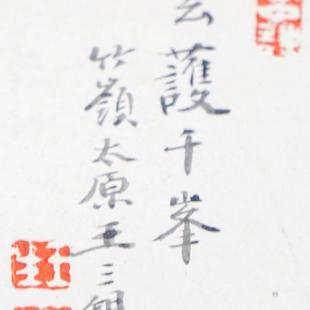 云護千峯
竹嶺太原王三